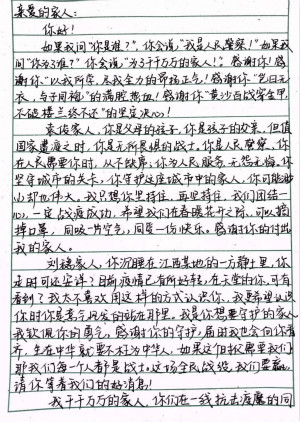 亲爱的家人：
你好！
如果我问“你是谁？”，你会说“我是人民警察！”如果我
问“你为了谁？”你会说“为了千千万万的家人！”感谢你！感
谢你“以我所学，尽我全力”的昂扬正气！感谢你“岂曰无
衣，与子同袍”的满腔热血！感谢你“黄沙百战穿金甲，
不破楼兰终不还”的坚定决心！
袁俊家人，你是父母的孩子，你是孩子的父亲，但值
国家遭难之时，你是无所畏惧的战士。你是人民警察，你
在人民需要你时，从不缺席，你为人民服务，无怨无悔，你
坚守城市的关卡，你守护这座城市中的家人，你可能
小却也伟大。我只想你坚持住，再坚持住，我们团结一
心，一定战疫成功。希望我们在春暖花开之际，可以摘
掉口罩，同吸一片空气，同享一份快乐。感谢你的付出
我的家人。
刘家人，你沉睡在江西某地的一方静土里，你
走时可还安详？目前疫情已有所好转，在天堂的你，可有
看到？我太不喜欢用这样的方式认识你，我更希望认识
你时你是意气风发的站在那里。我是你想要守护的家人
我钦佩你的勇气，感谢你的守护，届时我也会向你看
齐，生在中华就要不枉为中华人，如果这个时候需要我们
那我们每一个人都是战士。这场全民战役，我们要赢，
请你等着我们的好消息！
我千千万万的家人，你们在一线抗击疫魔的同